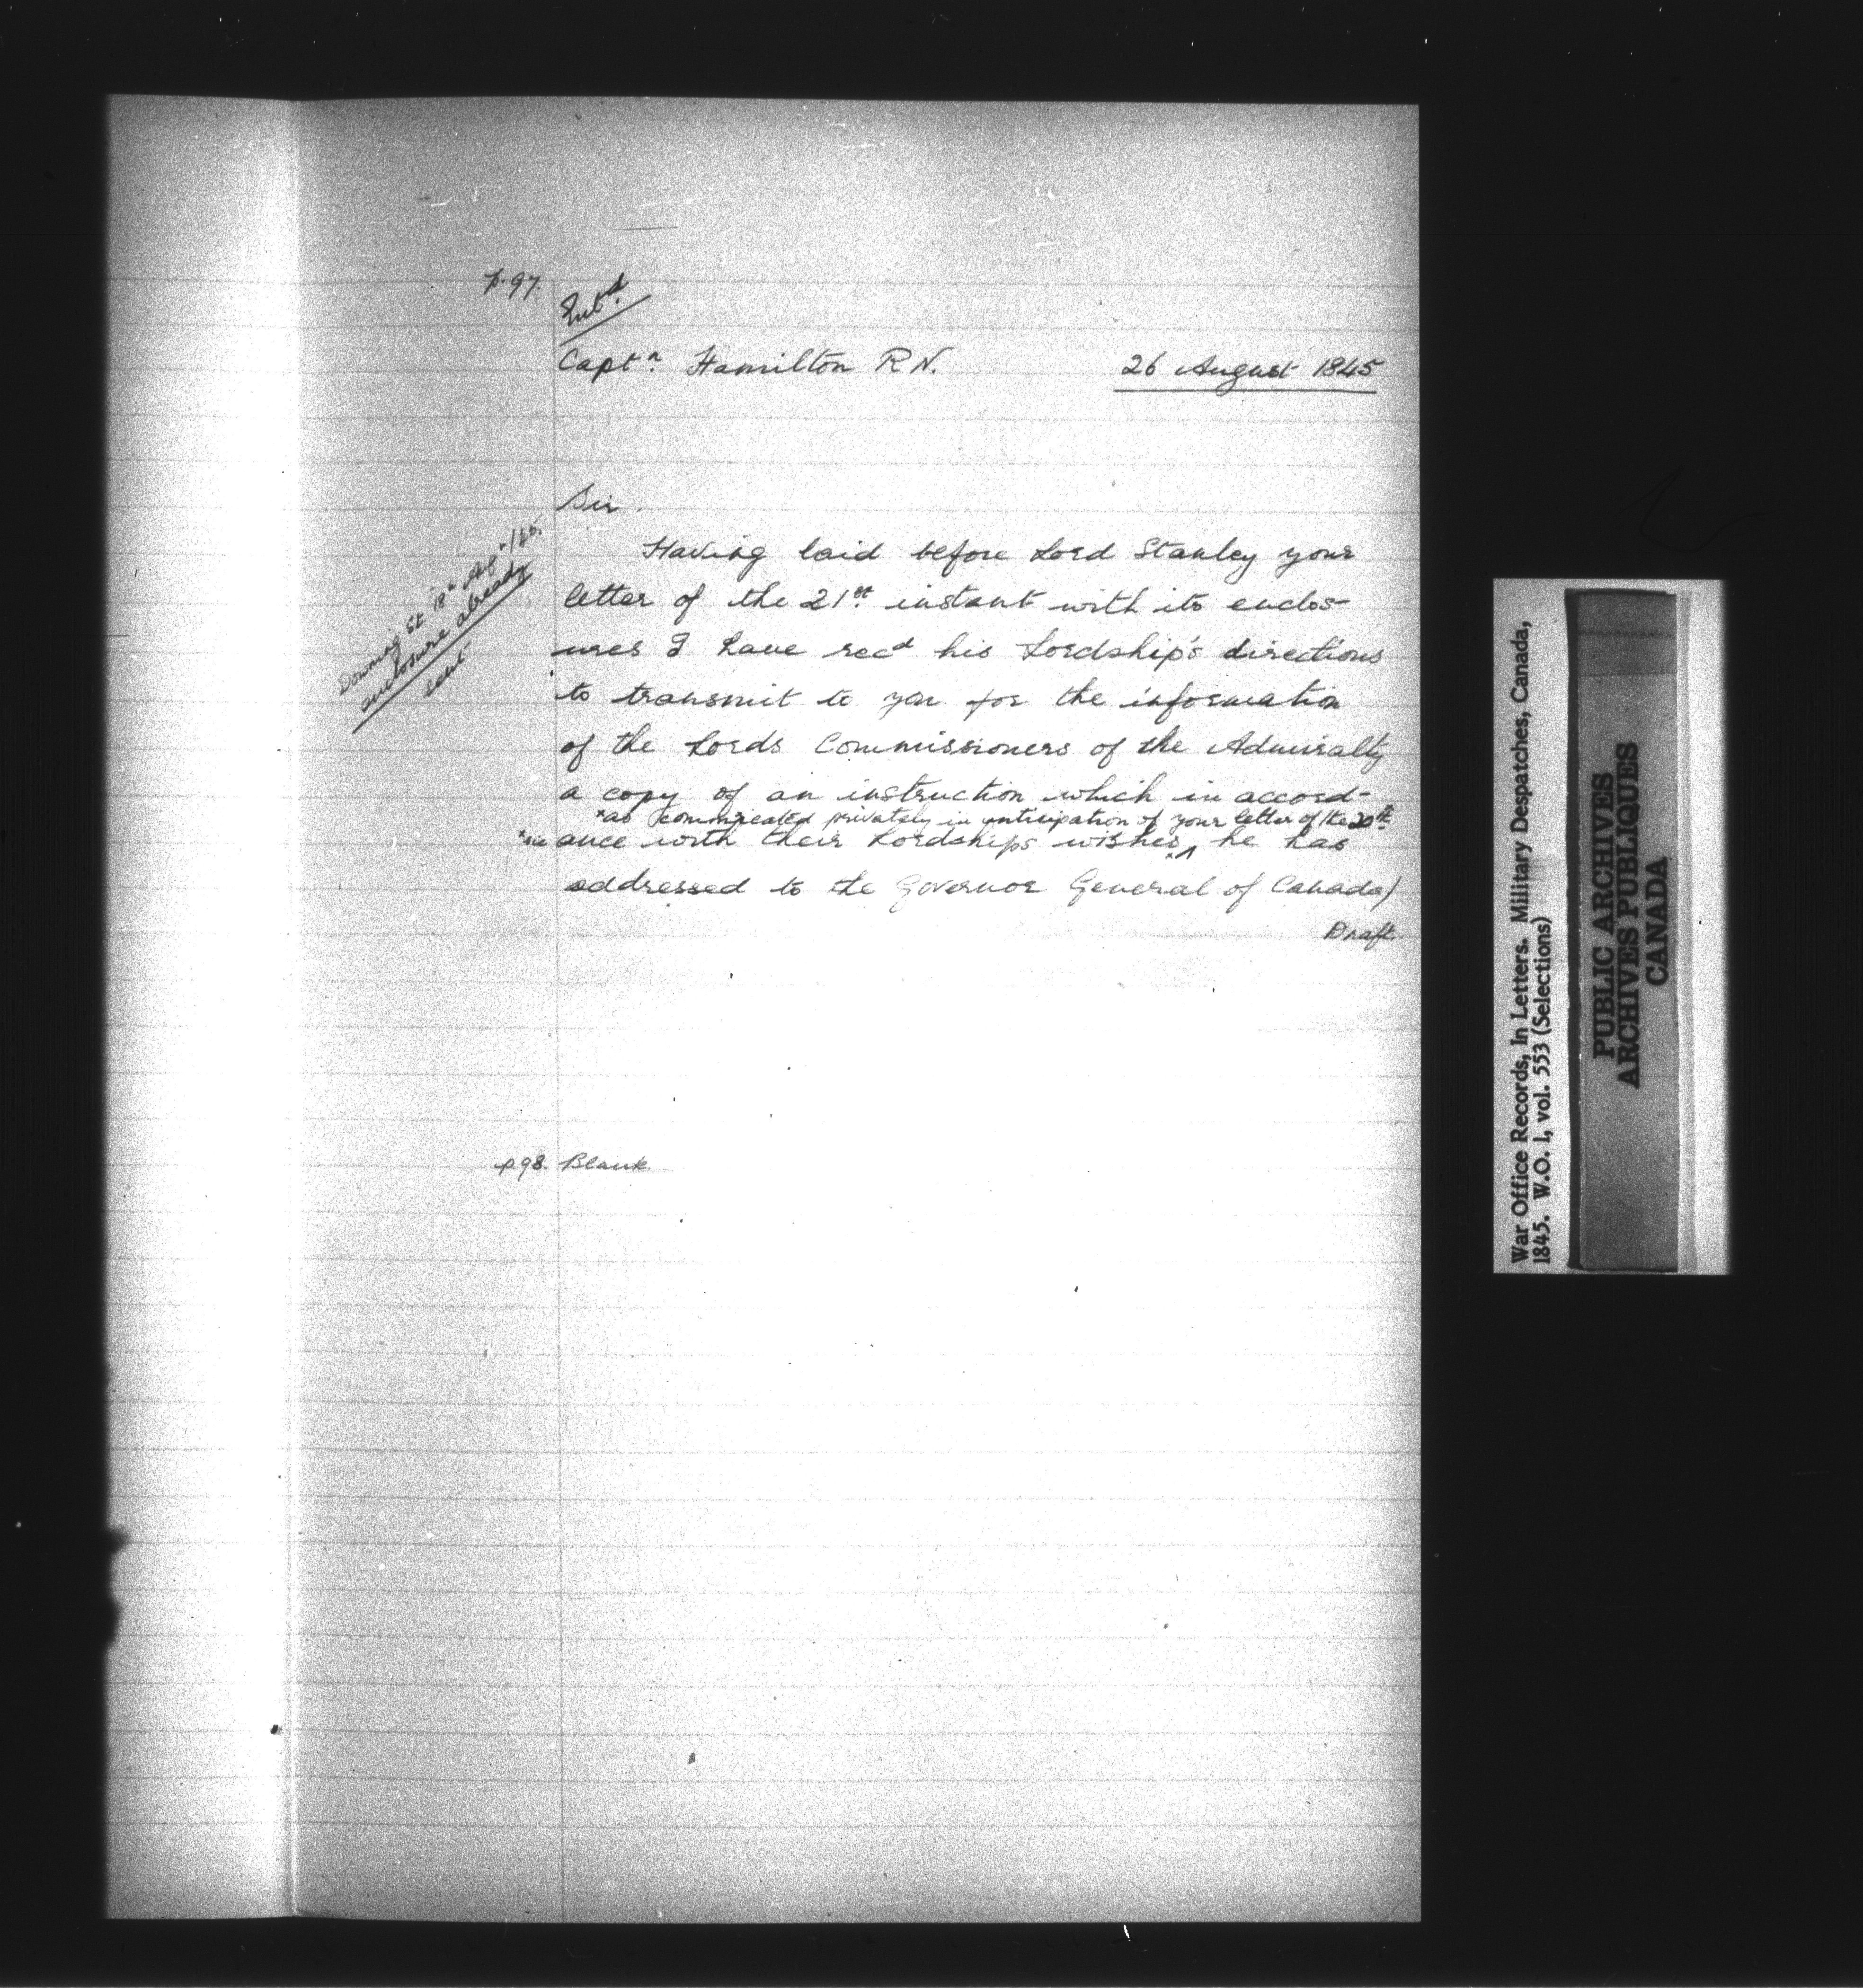 p. 97.
Entd.
Captn. Hamilton R N. 26 August 1845
Sir.
Having laid before Lord Stanley your
letter of the 21st. instant with its enclos-
ures I have recd his Lordship's directions
to transmit to you for the information
of the Lords Commissioners of the Admiralty
a copy of an instruction which in accord-
*as communicated privately in anticipation of your letter of the 20th
*sic ance with their Lordships wishes, ^ he has
addressed to the Governor General of Canada)
Draft.
Downing St 18th /45.
enclosure already
sent
p 98. Blank.
War Office Records, In Letters. Military Despatches, Canada,
1845. W.O. 1, vol. 553 (Selections)
PUBLIC ARCHIVES
ARCHIVES PUBLIQUES
CANADA